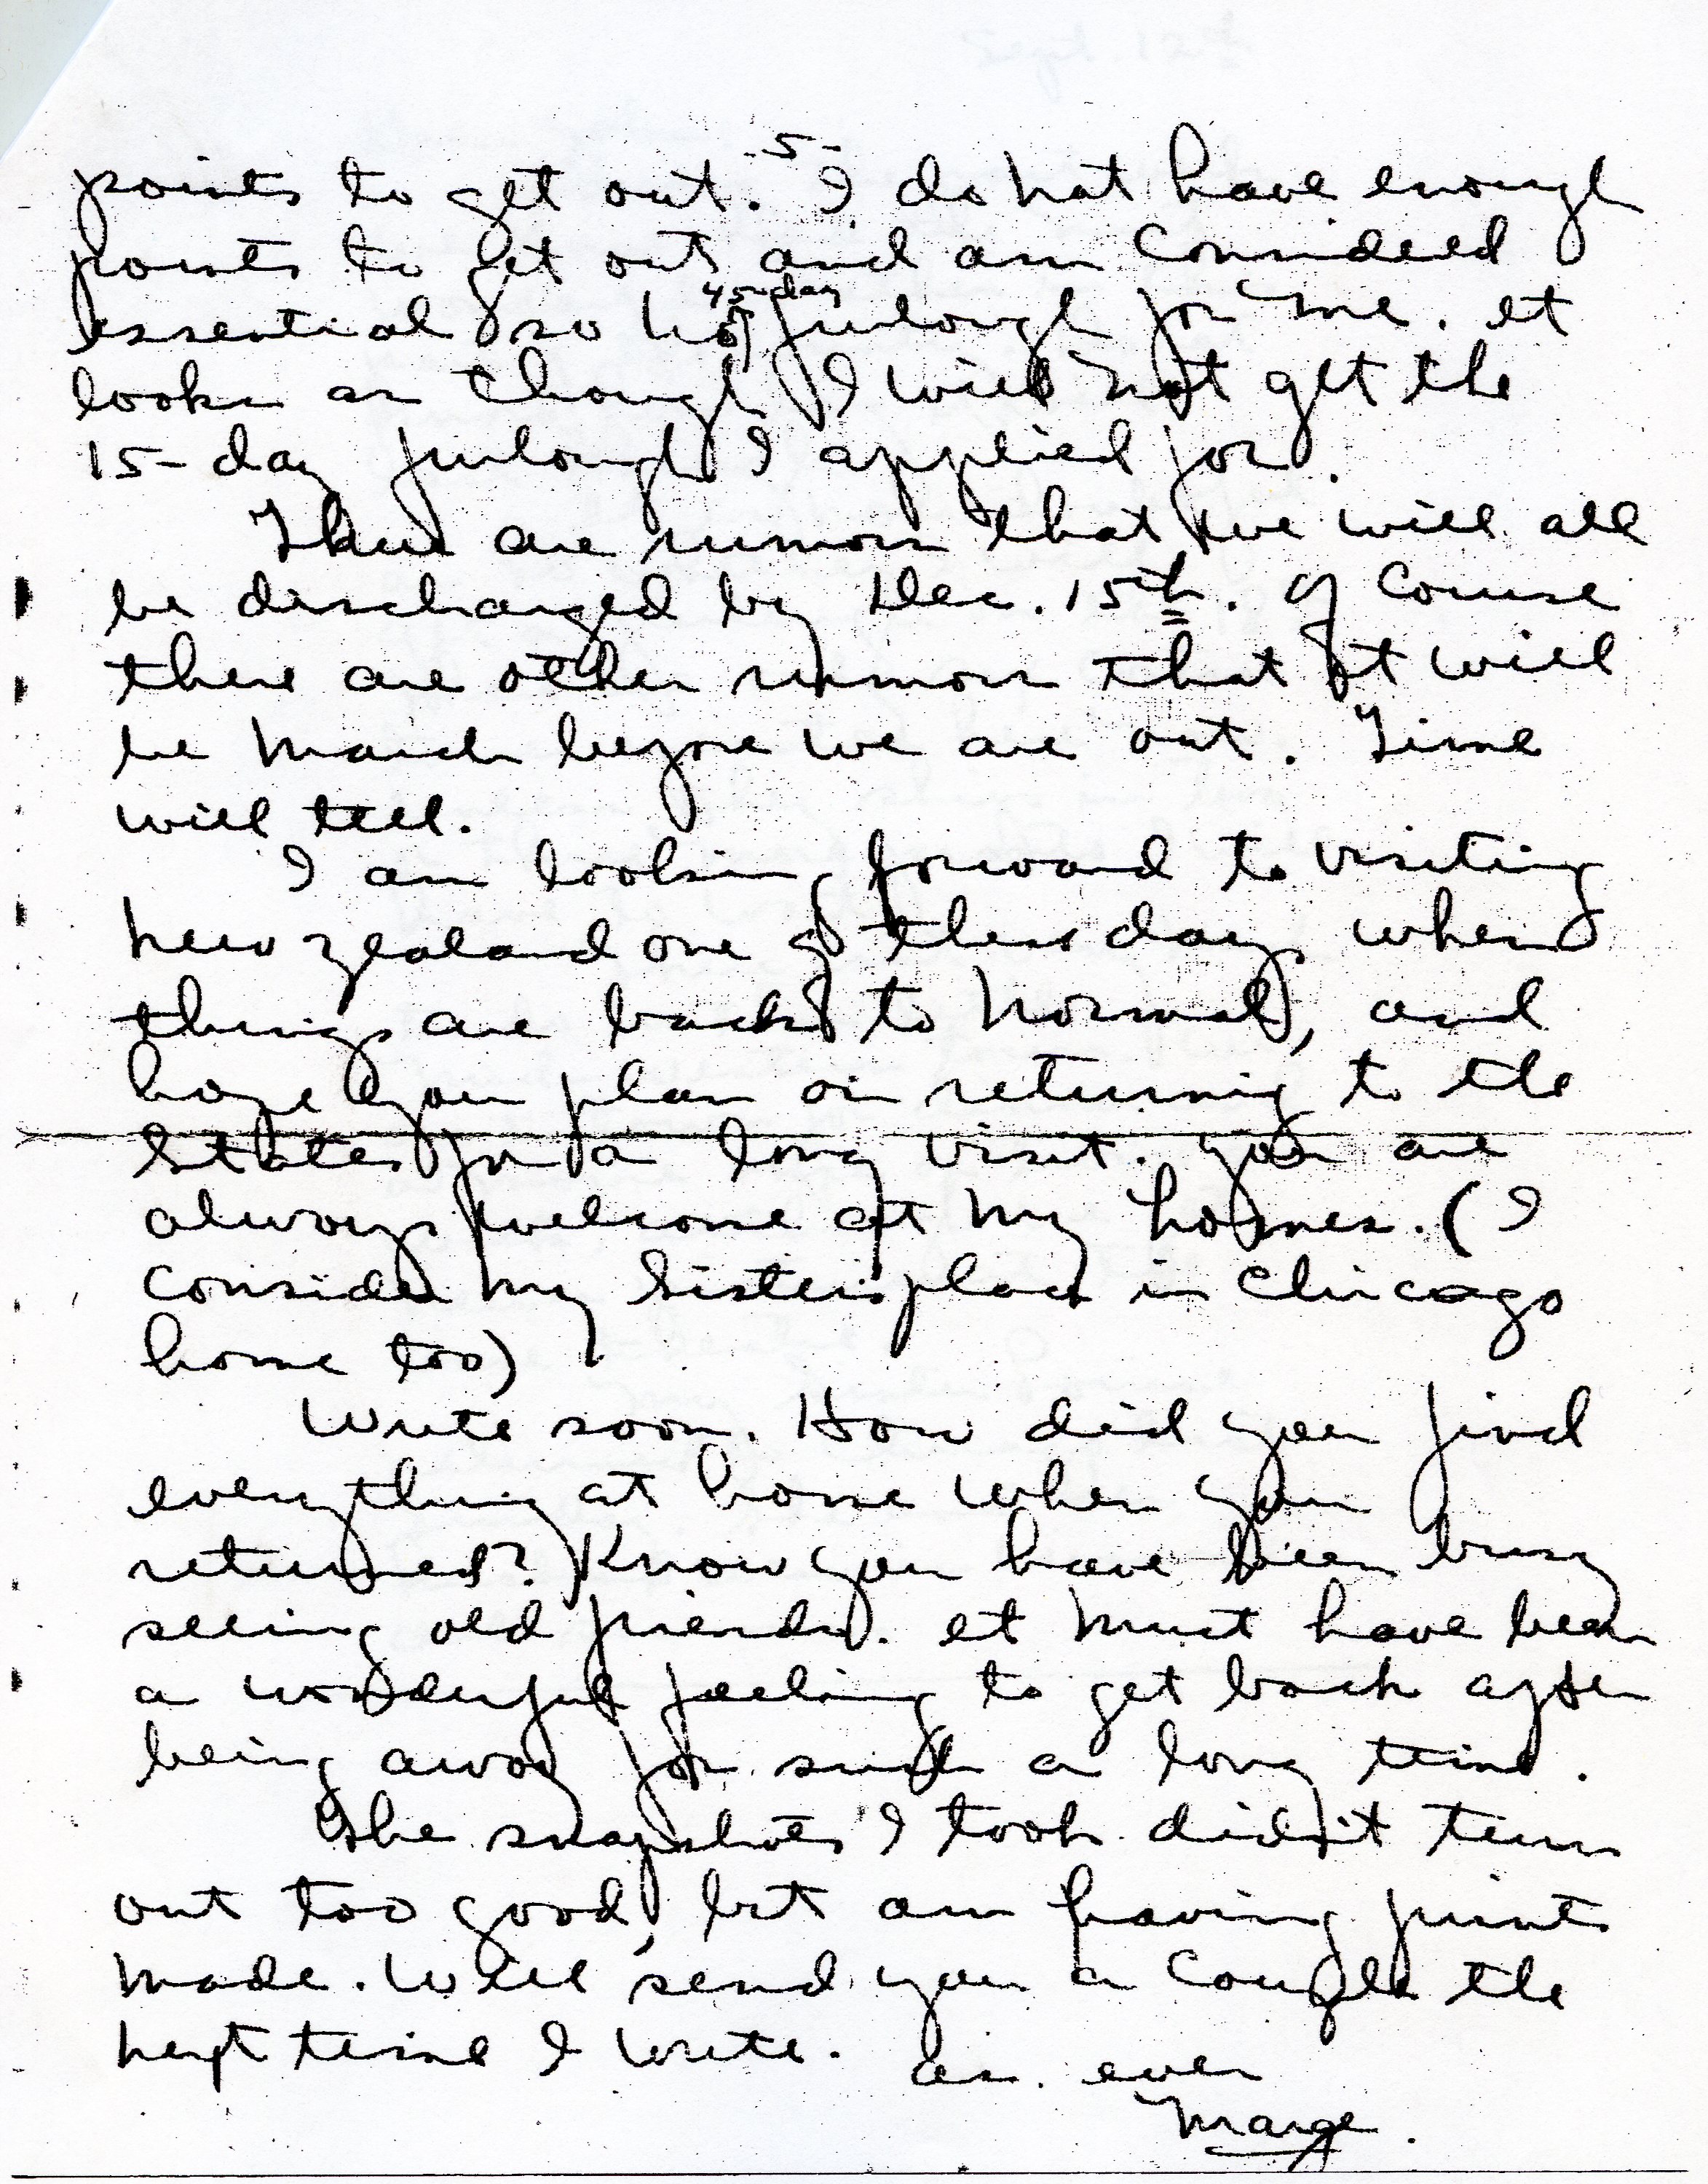 -5-
points to get out. I do not have enough
points to get out and am considered
45-day
essential so no furlough for me. It
looks as though I will not get the
15-day furlough I applied for.
There are rumors that we will all
be discharged by Dec. 15th. Of course
there are other rumors that it will
be March before we are out. Time
will tell.
I am looking forward to visiting
New Zealand one of these days when
things are back to normal, and
hope you plan on returning to the
States for a long visit. You are
always welcome at my homes. (I
consider my sister's place in Chicago
home too)
Write soon. How did you find
everything at home when you
returned? Know you have been busy
seeing old friends. It must have been
a wonderful feeling to get back after
being away for such a long time.
The snapshots I took didn't turn
out too good, but am having prints
made. Will send you a couple the
next time I write.
As ever
Marge.